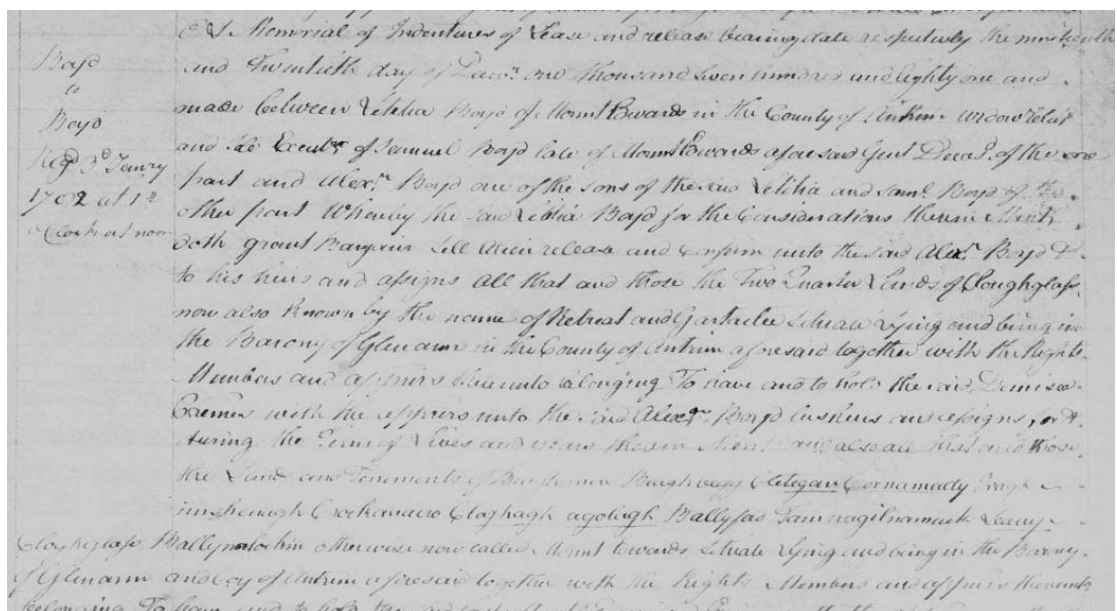 Boyd
to
Boyd
Regd 3d Janry
1782 at 12
o Clock at noon
A Memorial of Indentures of Lease and release bearing date respectively the nineteenth
and Twentieth day of Decr. one thousand seven hundred and Eighty one and
made between Letitia Boyd of Mount Edwards in the County of Antrim widow relict
and Executx of Samuel Boyd late of Mount Edwards aforesaid Gent Decd. of the one
part and Alexr. Boyd one of the sons of the said Letitia and Saml. Boyd of the
other part Whereby the said Letitia Boyd for the Considerations therein Mentd
doth grant Bargain Sell Alien release and Confirm unto the said Alexr. Boyd &
to his heirs and assigns All that and those the Two Quarter Lands of Cloughglass
now also known by the name of Retreat and Gortaclee Situate Lying and being in
the Barony of Glenarm in the County of Antrim aforesaid together with the Rights
Members and appurs thereunto belonging To have and to hold the said Demised
Premes with the appurs unto the said Alexr. Boyd his heirs and assigns, for &
during the Term of Lives and years therein Ment and also all that and those
the Lands and Tenements of Clelegan Cornamady
Crockanauro Cloghagh agolagh Ballyfad Tamnagilnamuck
Cloghglass otherwise now called Mount Edwards Situate Lying and being in the Barony
of Glenarm and Coy of Antrim aforesaid together with the Rights Members and appurs thereunto
belonging To have and to hold the